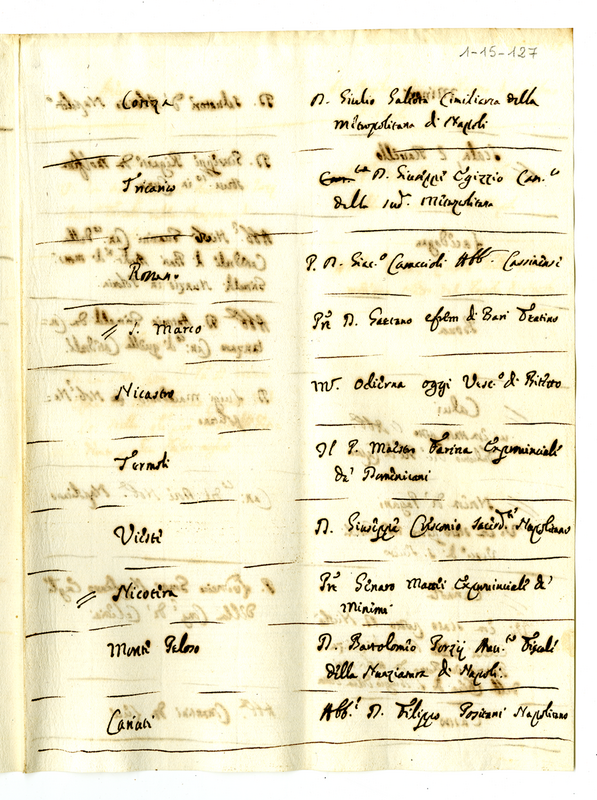 1-15-127
Cotrone
D. Giulio Galiota Cimiliarca della
Metropolitana di Napoli
Tricarico
D. Giuseppe Egizzio Can.co
della sud.a Metropolitana
P. D. Giac.o Caraccioli Abb.e Cassinense
S. Marco
Pre D. Gaetano Efrem di Bari Teatino
Nicastro
Mr. Odierna oggi Vesc.o di Bitetto
Termoli
Il P. Maestro Farina Exprovinciale
de' Domenicani
Vieste
D. Giuseppe Crisconio Sacerd.te Napolitano
Nicotera
Pre Genaro Mattei Exprovinciale de'
Minimi
Monte Peloso
D. Bartolomeo Porzij Avv.to Fiscale
della Nunziatura di Napoli
Cariati
Abb.e D. Filippo Positani Napolitano